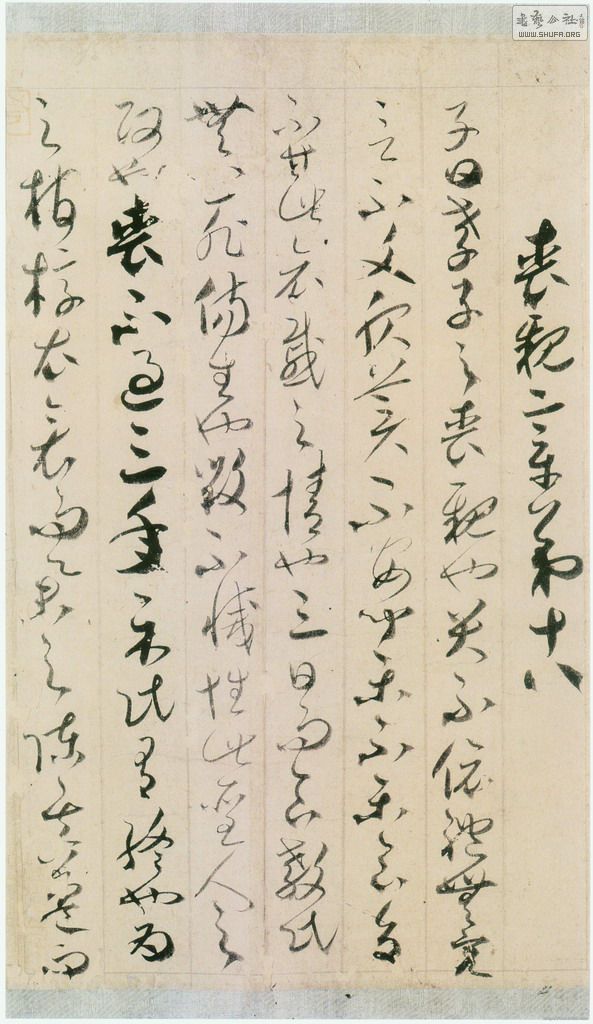 書藝公社
WWW.SHUFA.ORG
喪親章第十八
子曰孝子之喪親也哭不偯禮無容
言不文服美不安聞樂不樂食旨
不甘此哀戚之情也三日而食教民
無以死傷生也毀不滅性此聖人之
政也喪不過三年示民有終也為
之棺槨衣衾而舉之陳其簠簋而